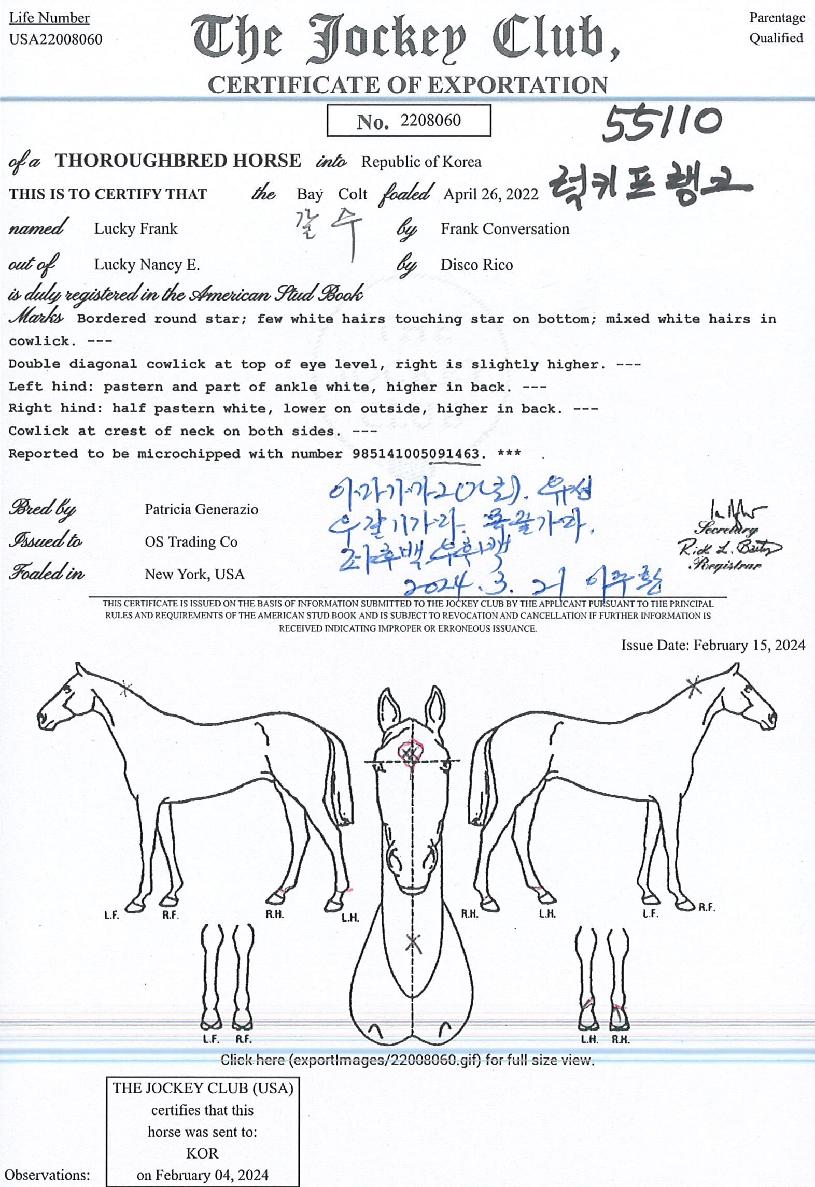 Life Number
USA22008060
The Jockey Club,
Parentage
Qualified
CERTIFICATE OF EXPORTATION
No. 2208060
55110
of a THOROUGHBRED HORSE into Republic of Korea
THIS IS TO CERTIFY THAT the Bay Colt foaled April 26, 2022
럭키프랭크
named Lucky Frank by Frank Conversation
갈 수
out of Lucky Nancy E. by Disco Rico
is duly registered in the American Stud Book
Marks Bordered round star; few white hairs touching star on bottom; mixed white hairs in
cowlick. ---
Double diagonal cowlick at top of eye level, right is slightly higher. ---
Left hind: pastern and part of ankle white, higher in back. ---
Right hind: half pastern white, lower on outside, higher in back. ---
Cowlick at crest of neck on both sides. ---
Reported to be microchipped with number 985141005091463. *** .
Bred by Patricia Generazio
Issued to OS Trading Co
Foaled in New York, USA
좌후백 우후백
2024. 3. 21
Secretary
Registrar
THIS CERTIFICATE IS ISSUED ON THE BASIS OF INFORMATION SUBMITTED TO THE JOCKEY CLUB BY THE APPLICANT PURSUANT TO THE PRINCIPAL
RULES AND REQUIREMENTS OF THE AMERICAN STUD BOOK AND IS SUBJECT TO REVOCATION AND CANCELLATION IF FURTHER INFORMATION IS
RECEIVED INDICATING IMPROPER OR ERRONEOUS ISSUANCE.
Issue Date: February 15, 2024
L.F. R.F. R.H. L.H. R.H. L.H. L.F. R.F.
L.F. R.F. L.H. R.H.
Click here (exportImages/22008060.gif) for full size view.
THE JOCKEY CLUB (USA)
certifies that this
horse was sent to:
KOR
Observations: on February 04, 2024